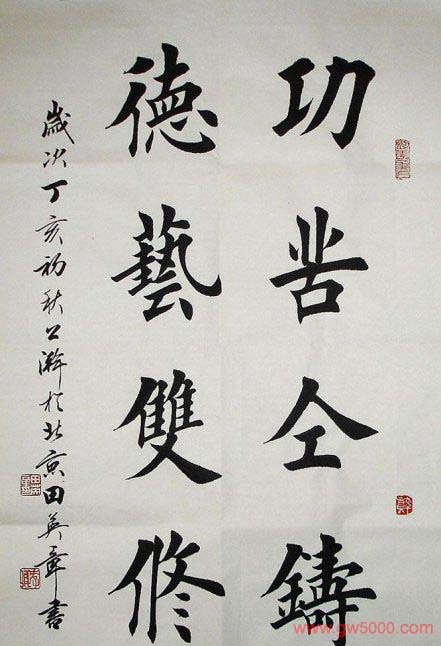 功苦仝鑄
德藝雙修
歲次丁亥初秋澣於北京田英章書
www.gw5000.com